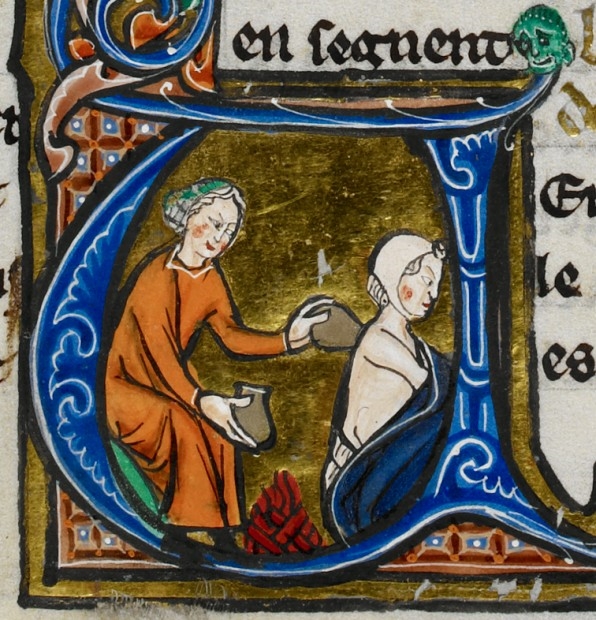 en segnent
En
le
es